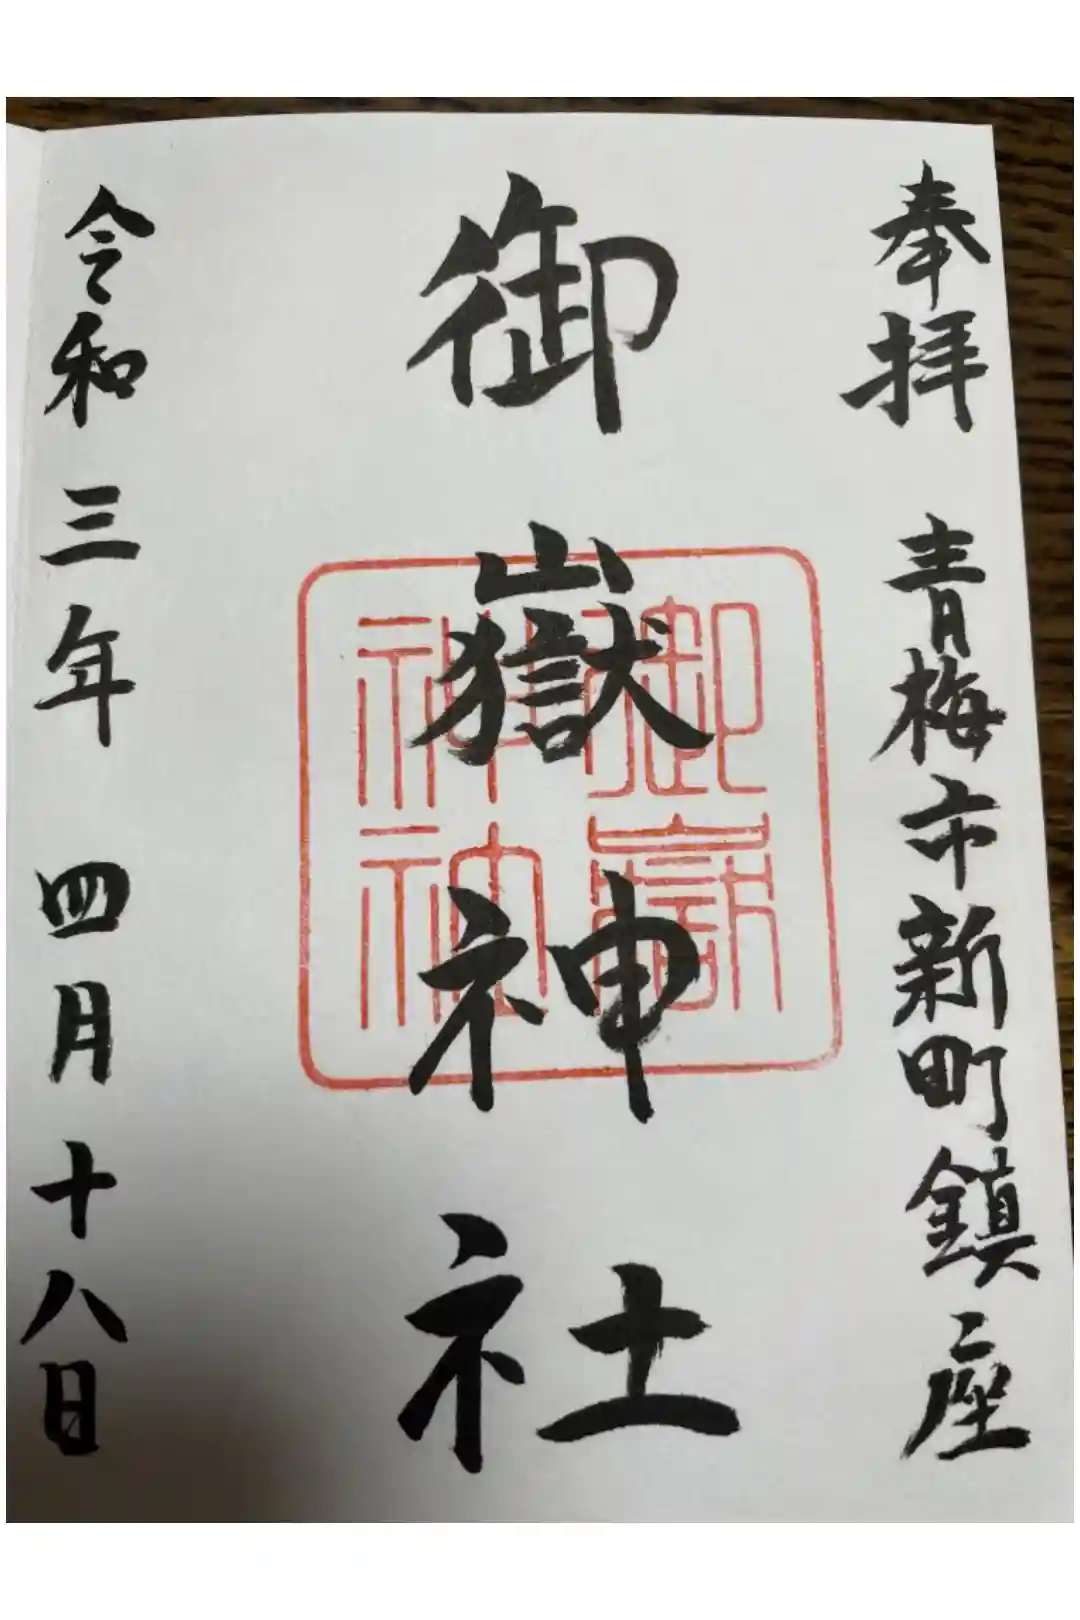 奉拝 青梅市新町鎮座
御嶽神社
御嶽
神社
令和三年 四月十八日